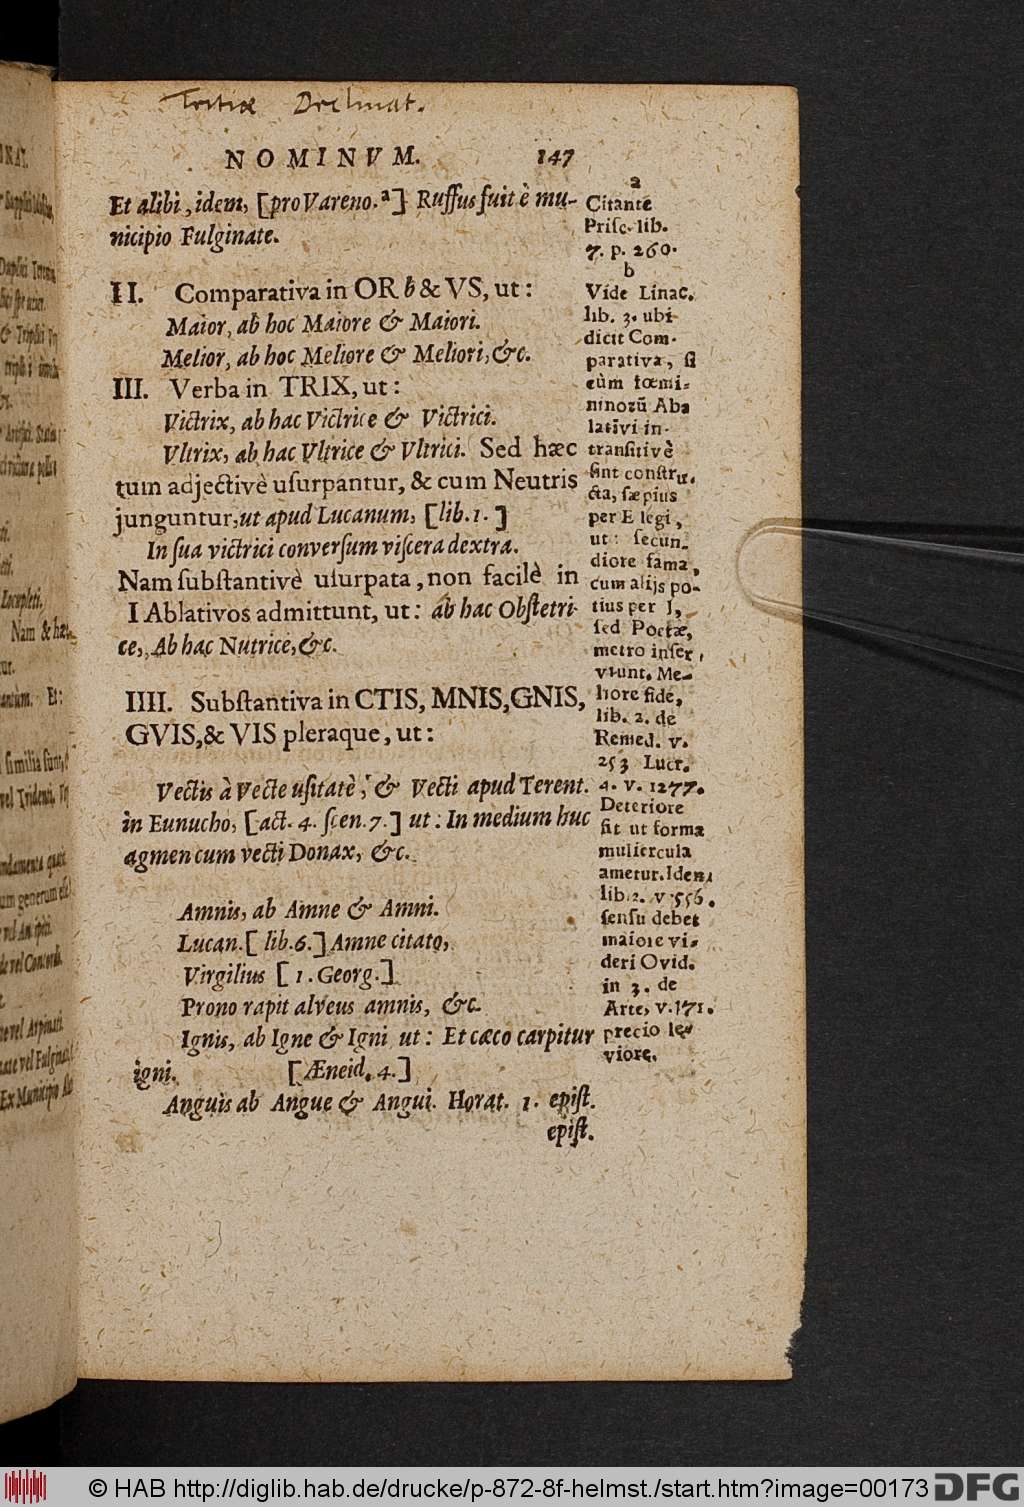 Tertiæ Declinat.
NOMINVM. 147
Et alibi, idem, [pro Vareno.ª] Ruffus fuit è mu-
nicipio Fulginate.
II. Comparativa in OR b & VS, ut:
Maior, ab hoc Maiore & Maiori.
Melior, ab hoc Meliore & Meliori, &c.
III. Verba in TRIX, ut:
Victrix, ab hac Victrice & Victrici.
Vltrix, ab hac Vltrice & Vltrici. Sed hæc
tum adjectivè uſurpantur, & cum Neutris
junguntur, ut apud Lucanum, [lib. 1.]
In ſua victrici converſum viſcera dextra.
Nam ſubſtantivè uſurpata, non facilè in
I Ablativos admittunt, ut: ab hac Obſtetri-
ce, Ab hac Nutrice, &c.
IIII. Subſtantiva in CTIS, MNIS, GNIS,
GVIS, & VIS pleraque, ut:
Vectis à Vecte uſitatè, & Vecti apud Terent.
in Eunucho, [act. 4. ſcen. 7.] ut: In medium huc
agmen cum vecti Donax, &c.
Amnis, ab Amne & Amni.
Lucan. [lib. 6.] Amne citato,
Virgilius [1. Georg.]
Prono rapit alveus amnis, &c.
Ignis, ab Igne & Igni ut: Et cæco carpitur
igni. [Æneid. 4.]
Anguis ab Angue & Angui. Horat. 1. epiſt.
epiſt.
a
Citante
Priſc. lib.
7. p. 260.
b
Vide Linac.
lib. 3. ubi
dicit Com-
parativa, ſi
cùm fœmi-
ninorū Aba
lativi in-
tranſitivè
ſint conſtru-
cta, ſæpius
per E legi,
ut: ſecun-
diore fama,
cum alijs po-
tius per I,
ſed Poetæ,
metro inſer
viunt. Me-
liore fide,
lib. 2. de
Remed. v.
253 Lucr.
4. v. 1277.
Deteriore
ſit ut forma
muliercula
ametur. Idem
lib. 2. v. 556.
ſenſu debet
maiore vi-
deri Ovid.
in 3. de
Arte, v. 171.
precio lę-
viore.
© HAB http://diglib.hab.de/drucke/p-872-8f-helmst./start.htm?image=00173 DFG